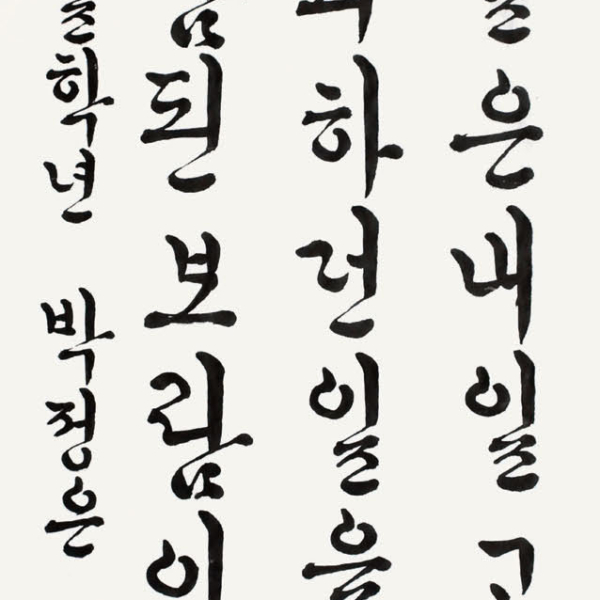 은 내일
하던 일을
된 보람이
학년 박정은